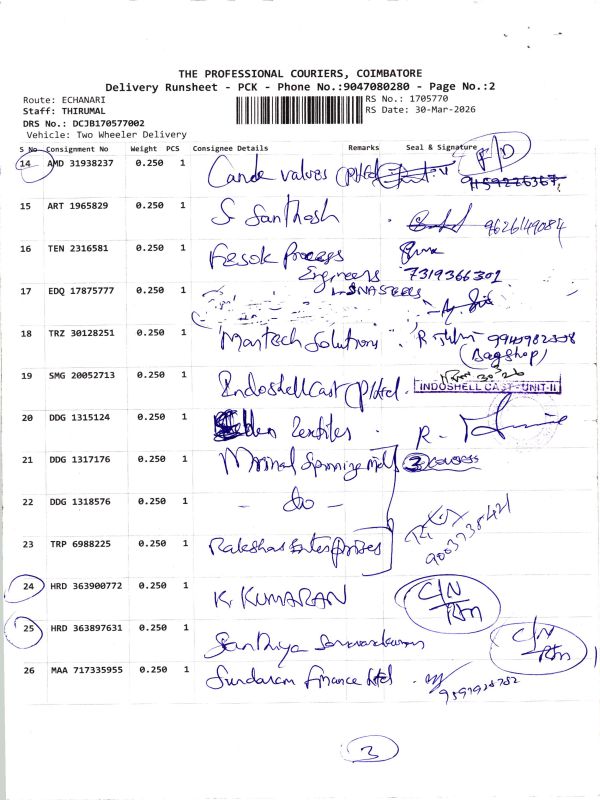 THE PROFESSIONAL COURIERS, COIMBATORE
Delivery Runsheet - PCK - Phone No.:9047080280 - Page No.:2
Route: ECHANARI RS No.: 1705770
Staff: THIRUMAL RS Date: 30-Mar-2026
DRS No.: DCJB170577002
Vehicle: Two Wheeler Delivery
S No Consignment No Weight PCS Consignee Details Remarks Seal & Signature
14 AMD 31938237 0.250 1 Valves (P) Ltd F/D
15 ART 1965829 0.250 1 S Santhosh 9626149084
16 TEN 2316581 0.250 1 Process
Engineers 7319366301
17 EDQ 17875777 0.250 1
18 TRZ 30128251 0.250 1 Martech Solutions R
(Bagshop)
19 SMG 20052713 0.250 1 Indoshell Cast (P) Ltd. INDOSHELL CAST - UNIT-II
20 DDG 1315124 0.250 1 Textiles R.
21 DDG 1317176 0.250 1 3 Covers
22 DDG 1318576 0.250 1 - do -
23 TRP 6988225 0.250 1 Enterprises 9003735421
24 HRD 363900772 0.250 1 K. KUMARAN C/N
Rtn
25 HRD 363897631 0.250 1 C/N
Rtn
26 MAA 717335955 0.250 1 Sundaram Finance Ltd
3